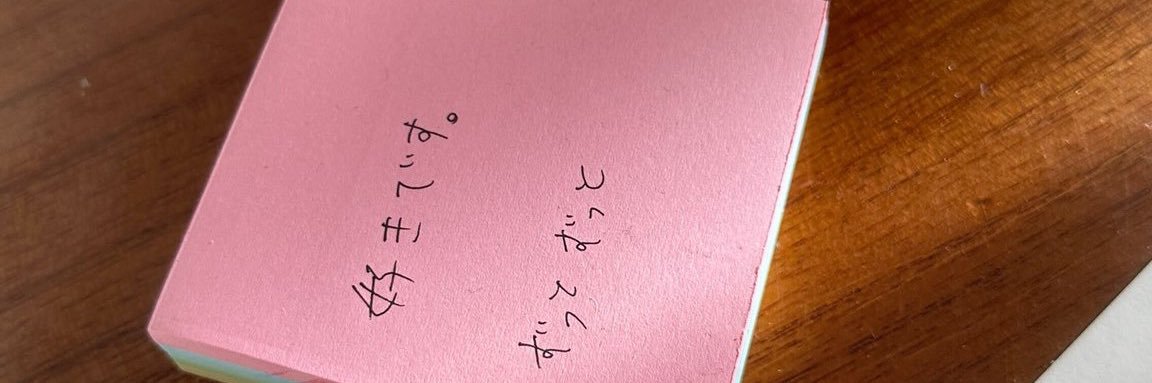 好きです。
ずっと ずっと